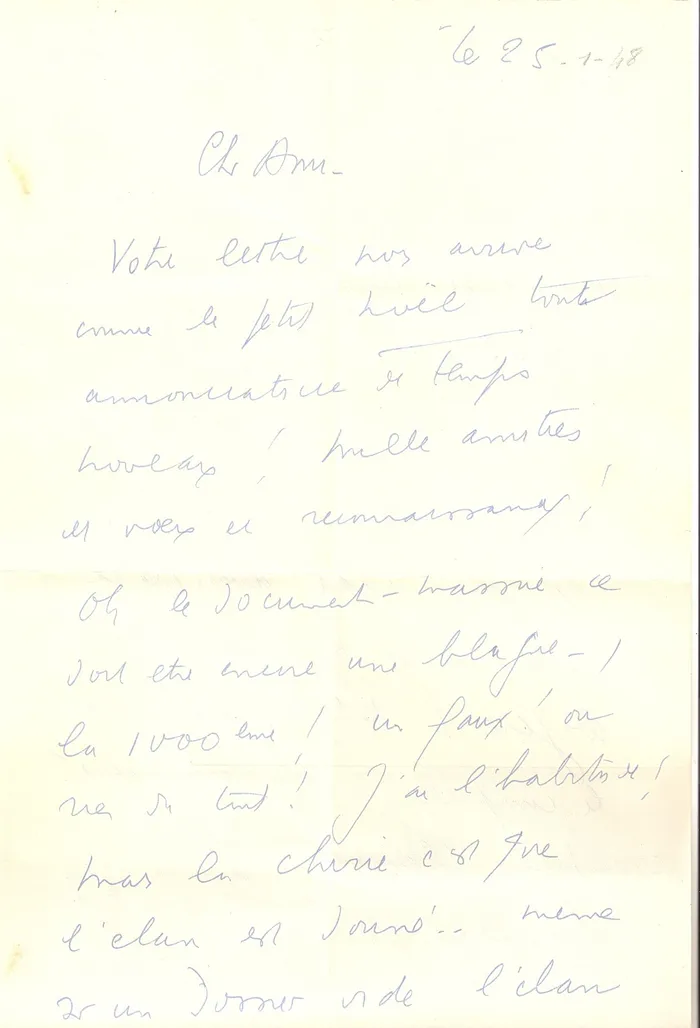 le 25-1-48
Cher Ami -
Votre lettre nous arrive
comme le petit Noël toute
annonciatrice de temps
nouveaux ! mille amitiés
et vœux et reconnaissance !
Oh le document-massue ce
doit etre encore une blague - !
la 1000ème ! un faux ! ou
rien du tout ! J'ai l'habitude !
mais la chose c'est que
l'élan est donné.. meme
sur un dossier vide l'élan